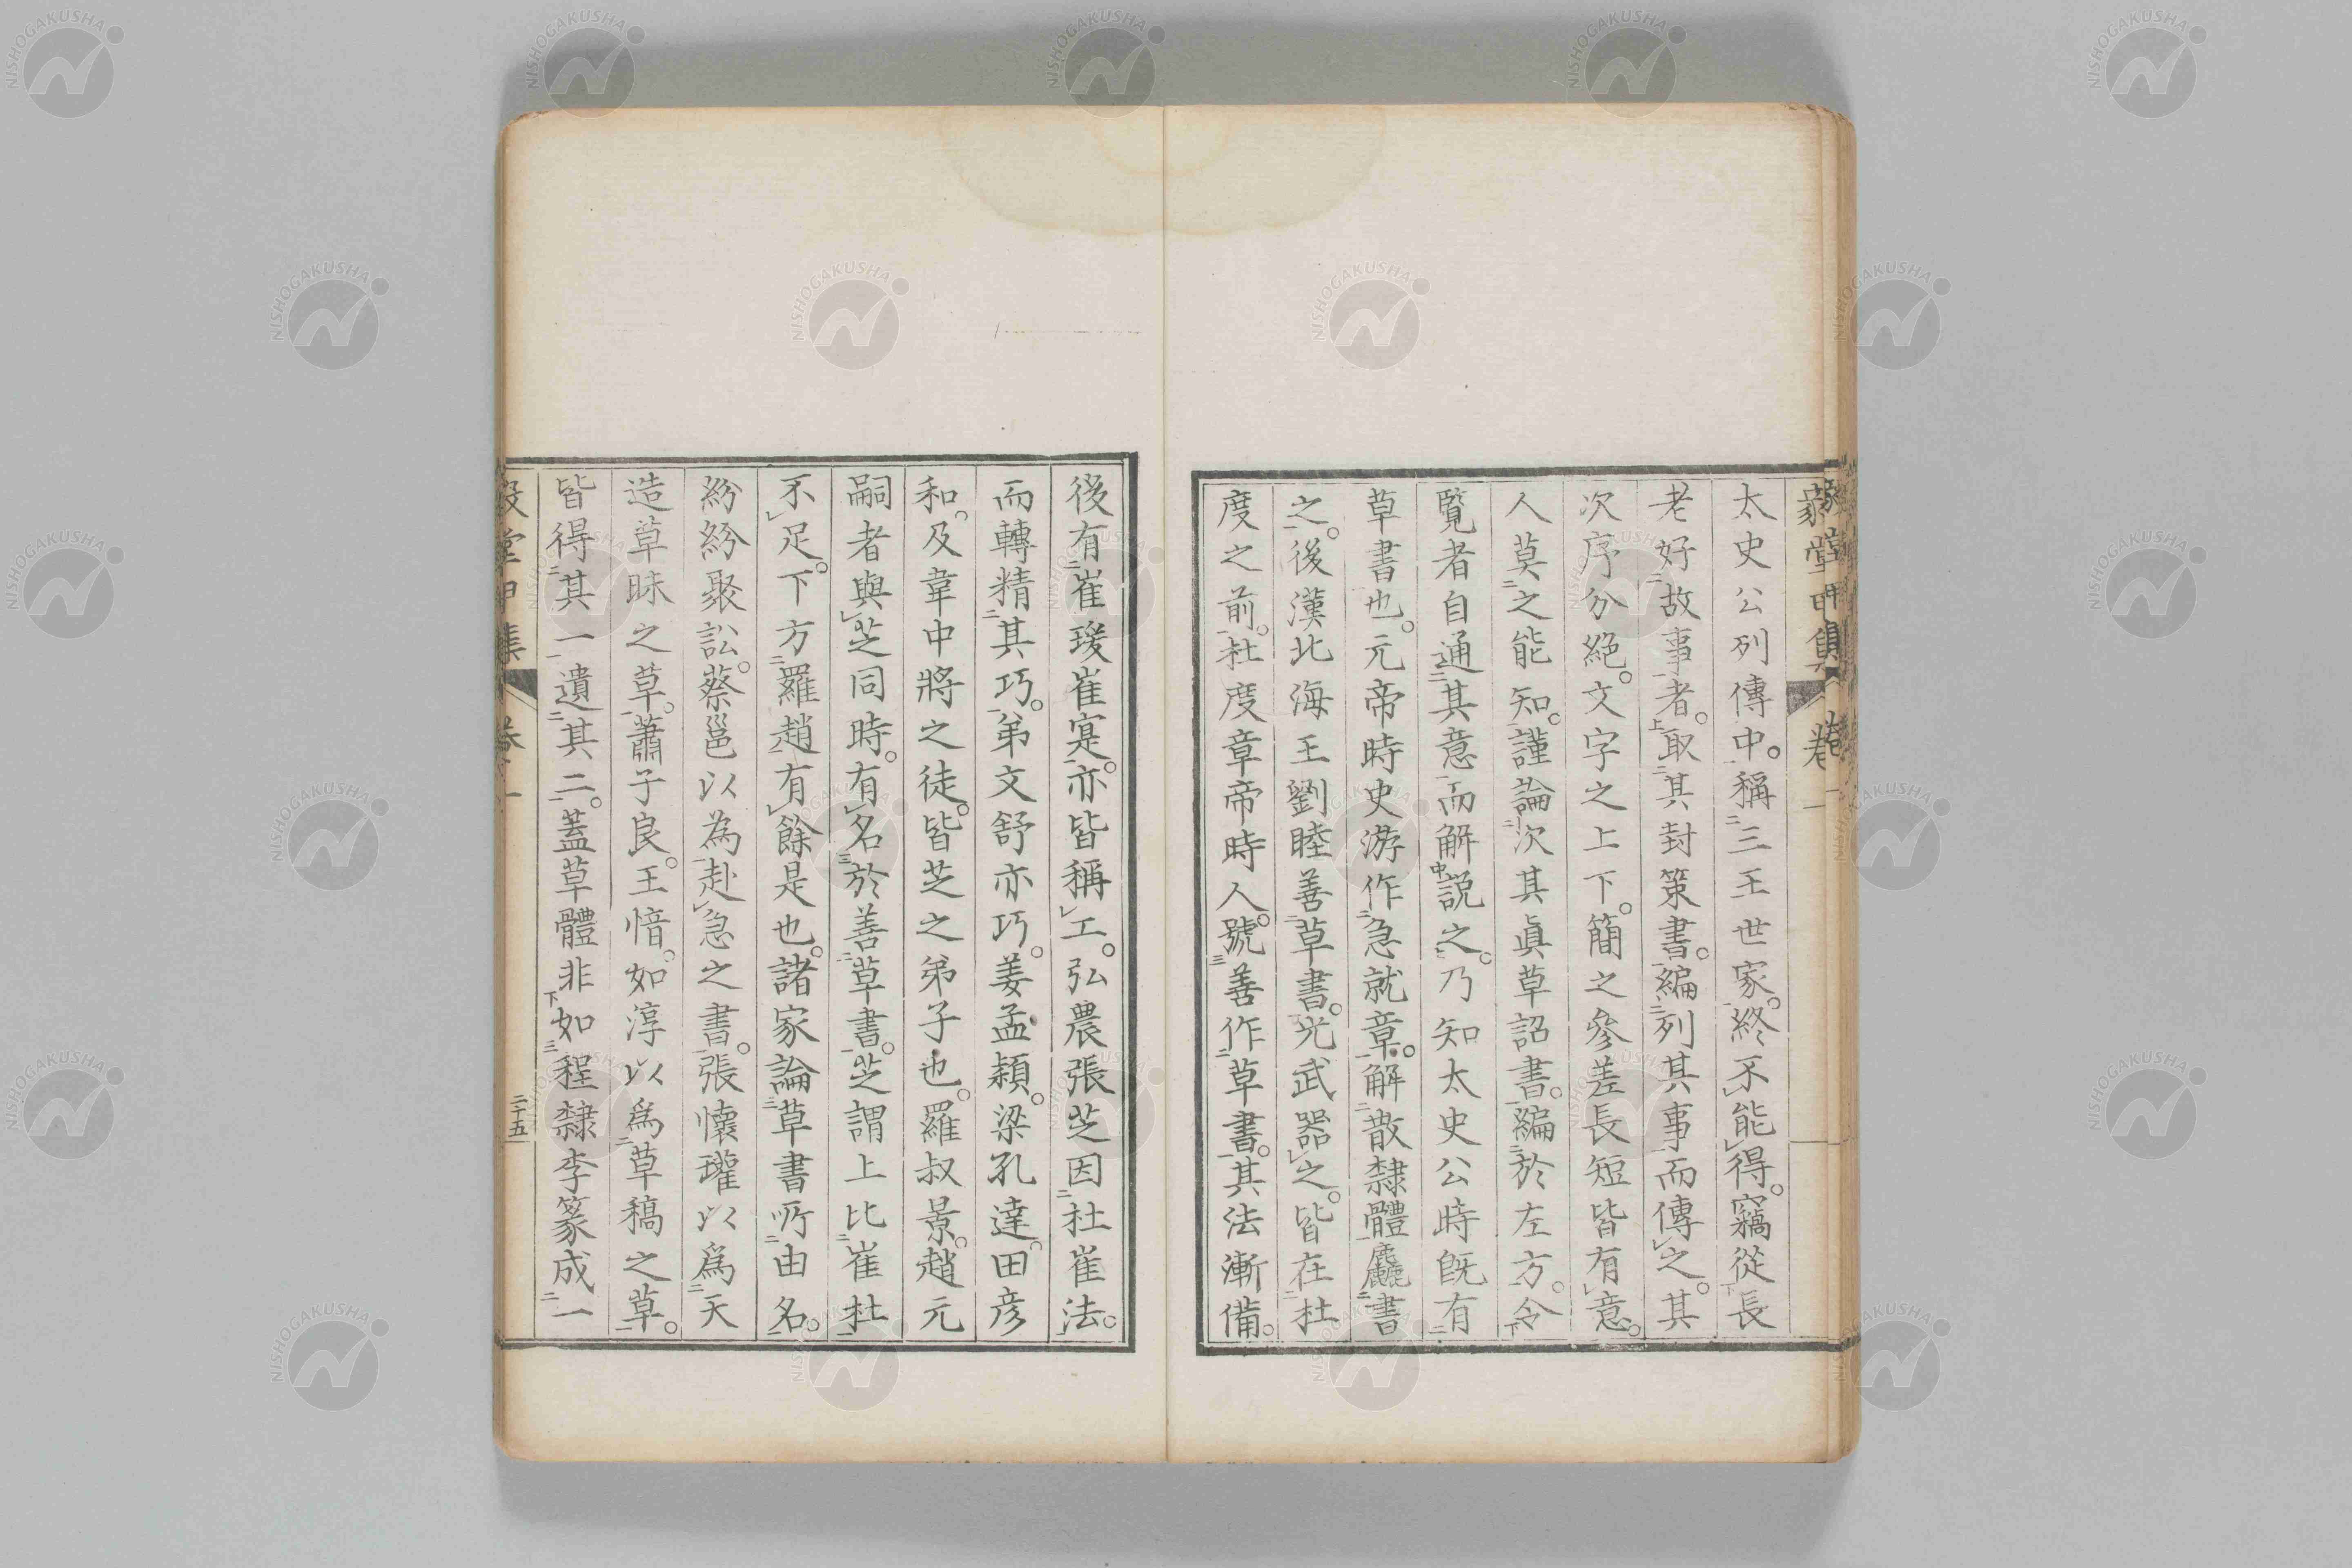 太史公列傳中。稱三王世家。終不能得。竊從長
老好故事者。取其封策書。編列其事而傳之。其
次序分絕。文字之上下。簡之參差長短皆有意。
人莫之能知。謹論次其眞草詔書。編於左方。令
覽者自通其意而解說之。乃知太史公時既有
草書也。元帝時史游作急就章。解散隸體麤書
之。後漢北海王劉睦善草書。光武器之。皆在杜
度之前。杜度章帝時人。號善作草書。其法漸備。
後有崔瑗崔寔。亦皆稱工。弘農張芝因杜崔法。
而轉精其巧。弟文舒亦巧。姜孟穎。梁孔達。田彦
和。及韋中將之徒。皆芝之弟子也。羅叔景。趙元
嗣者與芝同時。有名於善草書。芝謂上比崔杜
不足。下方羅趙有餘是也。諸家論草書所由名。
紛紛聚訟。蔡邕以為赴急之書。張懷瓘以爲天
造草昧之草。蕭子良。王愔。如淳以爲草稿之草。
皆得其一遺其二。蓋草體非如程隸李篆成一
二十五
NISHOGAKUSHA